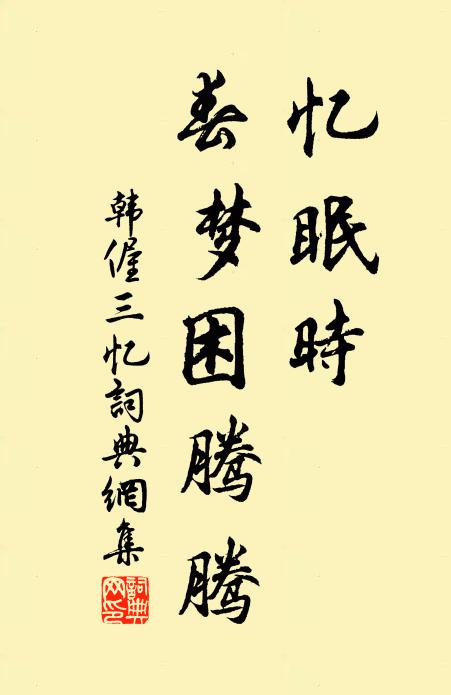 忆眠時
春梦困腾腾
韩偓三忆詞典網集
詞典网印